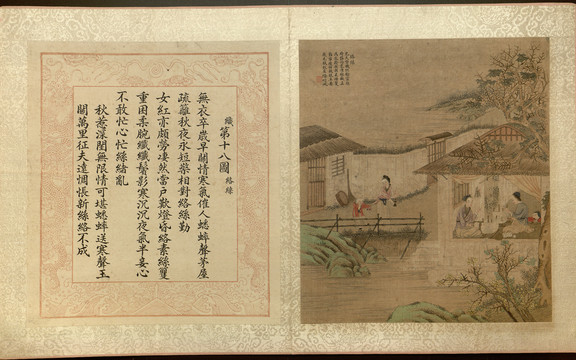 織第十八圖 絡絲
無衣卒歲早關情寒氣催人蟋蟀聲茅屋
疏籬秋夜永短檠相對絡絲勤
女紅亦頗勞凄然當戶歎燈昏絡素絲雙
重困柔腕纖纖鬢影寒沉沉夜氣半妾心
不敢忙心忙絲緒亂
秋惹深閨無限情可堪蟋蟀送寒聲玉
關萬里征夫遠惆悵新絲絡不成